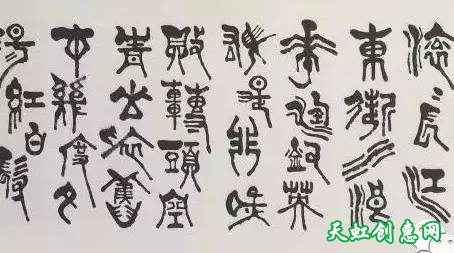 滾〻長江
東逝水浪
花淘盡英
雄是非成
敗轉頭空
青山依舊
在幾度夕
陽紅白髮
天虹创惠网